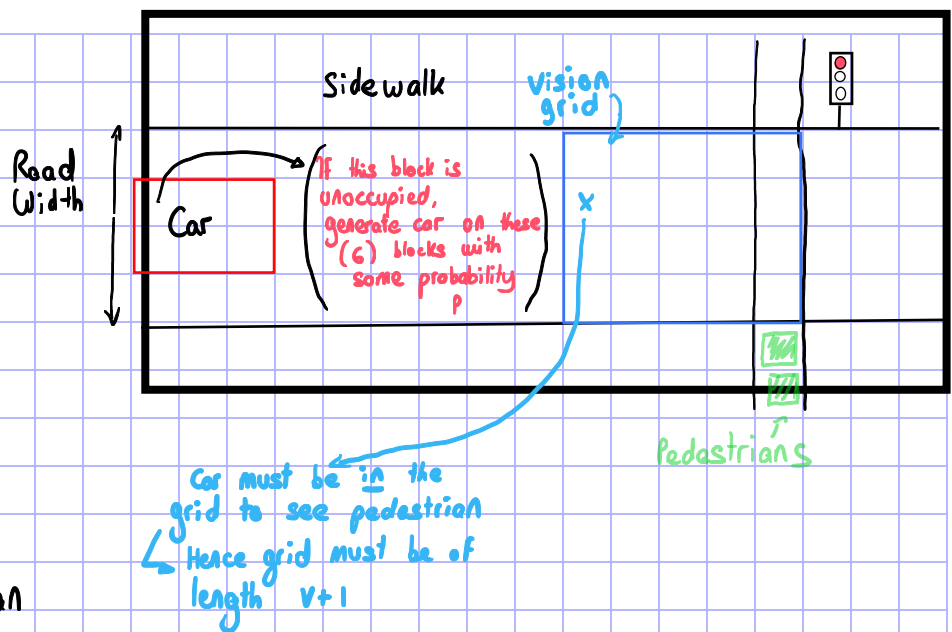 Sidewalk
Vision
grid
Road
Width
Car
If this block is
unoccupied,
generate car on these
(6) blocks with
some probability
p
x
Pedestrians
Car must be in the
grid to see pedestrian
Hence grid must be of
length v+1